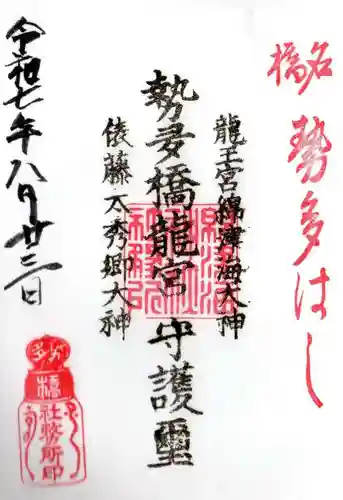 名橋
勢多はし
龍王宮綿津海大神
勢多橋龍宮守護璽
俵藤太秀郷大神
令和七年八月廿三日
橋
社務所印